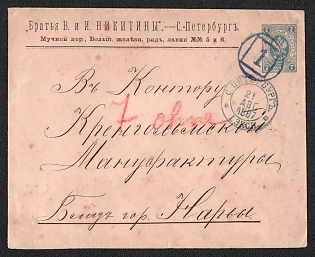 "Братья В. и И. НИКИТИНЫ".—С.-Петербургъ.
Мучной пер., Больш. желѣзн. рядъ, лавки №№ 5 и 6.
7
1
С.ПЕТЕРБУРГЪ
21
АВГ
1887
Въ Контору
Кренгольмской
Мануфактуры
близъ гор. Нарвы